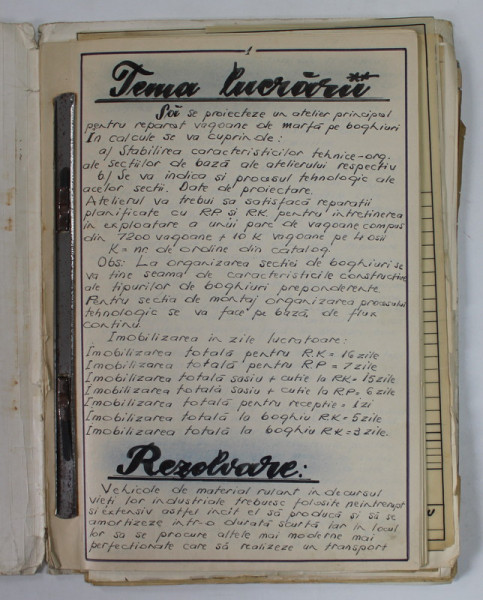 1
Tema lucrării
Să se proiecteze un atelier principal
pentru reparat vagoane de marfă pe boghiuri
In calcule se va cuprinde:
a) Stabilirea caracteristicilor tehnice-org.
ale sectiilor de bază ale atelierului respectiv
b) Se va indica si procesul tehnologic ale
acelor sectii. Date de proiectare.
Atelierul va trebui sa satisfacă reparatii
planificate cu RP si RK pentru intretinerea
in exploatare a unui parc de vagoane compus
din 7200 vagoane + 10 K vagoane pe 4 osii
K = nr de ordine din catalog
Obs: La organizarea sectiei de boghiuri se
va tine seama de caracteristicile constructive
ale tipurilor de boghiuri preponderente
Pentru sectia de montaj organizarea procesului
tehnologic se va face pe bază de flux
continu
Imobilizarea in zile lucratoare:
Imobilizarea totală pentru R.K = 16 zile
Imobilizarea totală pentru R.P = 7 zile
Imobilizarea totală sasiu + cutie la RK = 15 zile
Imobilizarea totală sasiu + cutie la RP = 6 zile
Imobilizarea totală pentru receptie = 1 zi
Imobilizarea totală la boghiu RK = 5 zile
Imobilizarea totală la boghiu RK = 3 zile.
Rezolvare:
Vehicole de material rulant in decursul
vieti lor industriale trebuesc folosite neintrerupt
si extensiv astfel incit el să producă si să se
amortizeze intr-o durată scurtă iar in locul
lor sa se procure altele mai moderne mai
perfectionate care să realizeze un transport